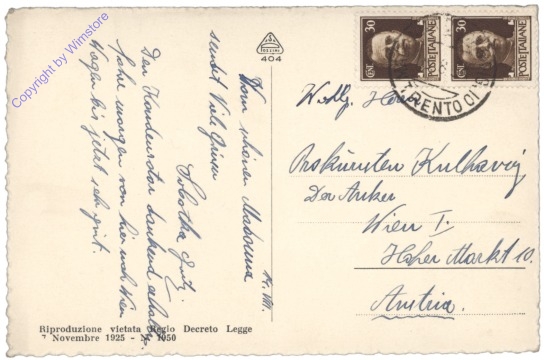 Copyright by Wimstore
404
Vom schönen Madonna
14. VII.
sendet Viele Grüsse
Sobotka Fritz
Den Kondensator dankend erhalten
fahre morgen von hier nach Wien
Wagen bis jetzt sehr gut.
Riproduzione vietata Regio Decreto Legge
7 Novembre 1925 - N. 1950
30 CENT. POSTE ITALIANE
30 CENT. POSTE ITALIANE
TRENTO
Herrn
Prokuristen Kulhavy
Der Anker
Wien I.
Hoher Markt 10.
Austria.